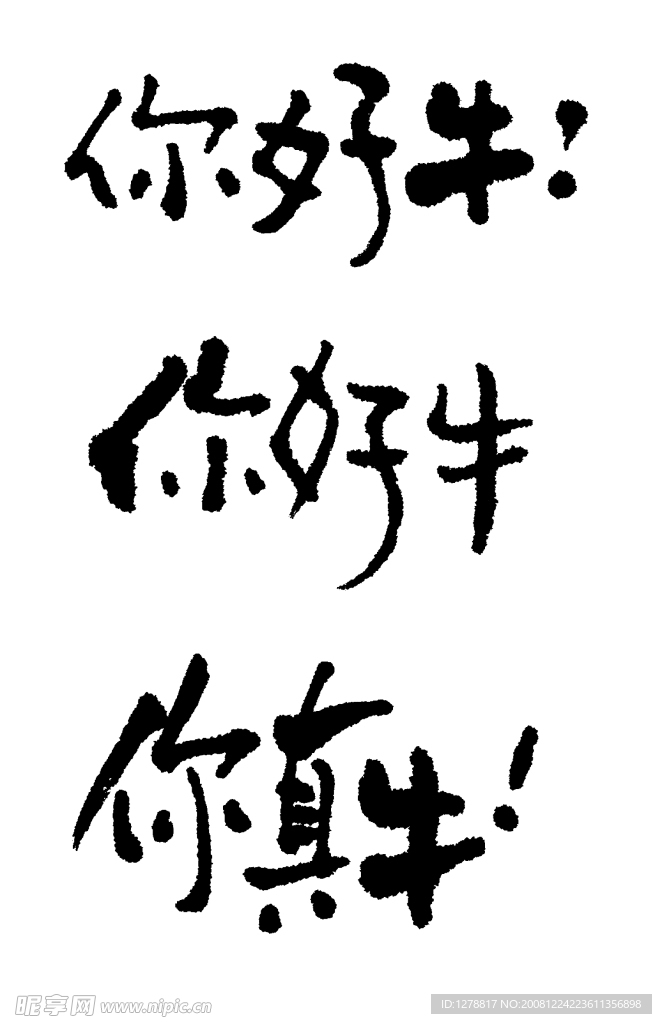 你好牛!
你好牛
你真牛!
昵享网 www.nipic.cn
ID:1278817 NO:20081224223611356898